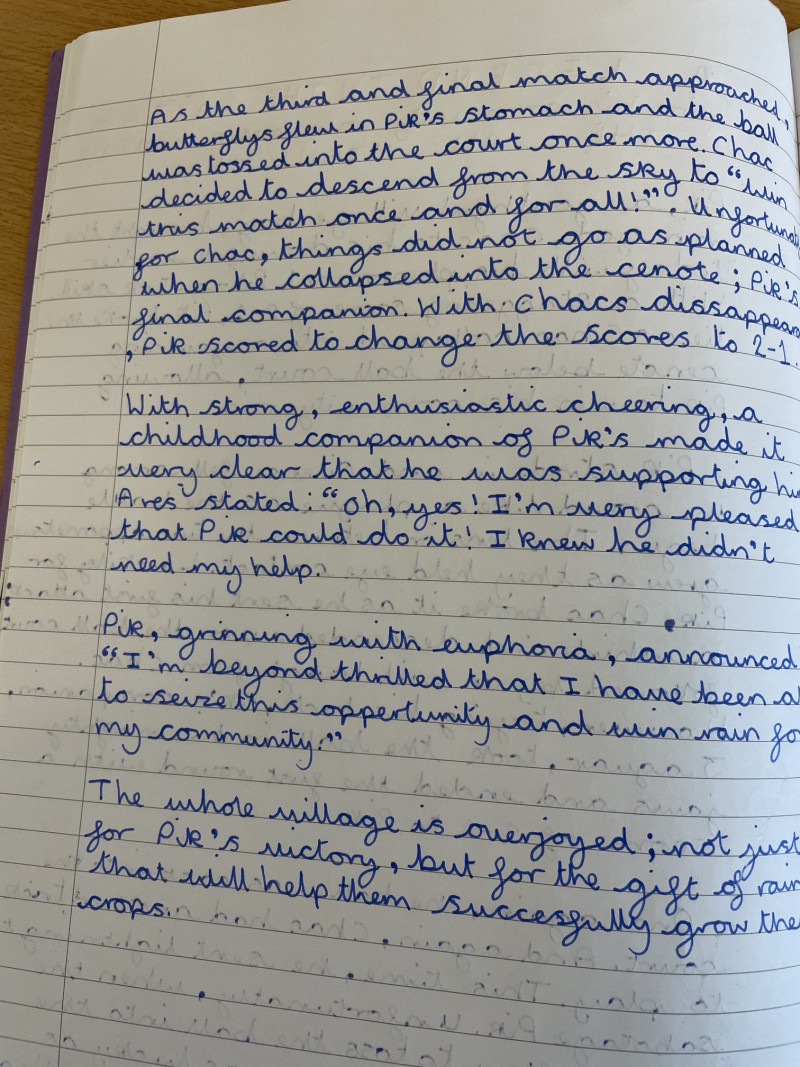 As the third and final match approached,
butterflys flew in Pik's stomach and the ball
was tossed into the court once more. Chac
decided to descend from the sky to "win
this match once and for all!". Unfortunat
for Chac, things did not go as planned
when he collapsed into the cenote; Pik's
final companion. With Chacs dissappear
, Pik scored to change the scores to 2-1.
With strong, enthusiastic cheering, a
childhood companion of Pik's made it
very clear that he was supporting hi
Ares stated: "Oh, yes! I'm very pleased
that Pik could do it! I knew he didn't
need my help.
Pik, grinning with euphoria, announced
"I'm beyond thrilled that I have been a
to seize this oppertunity and win rain fo
my community."
The whole village is overjoyed; not just
for Pik's victory, but for the gift of rain
that will help them succesfully grow the
crops.